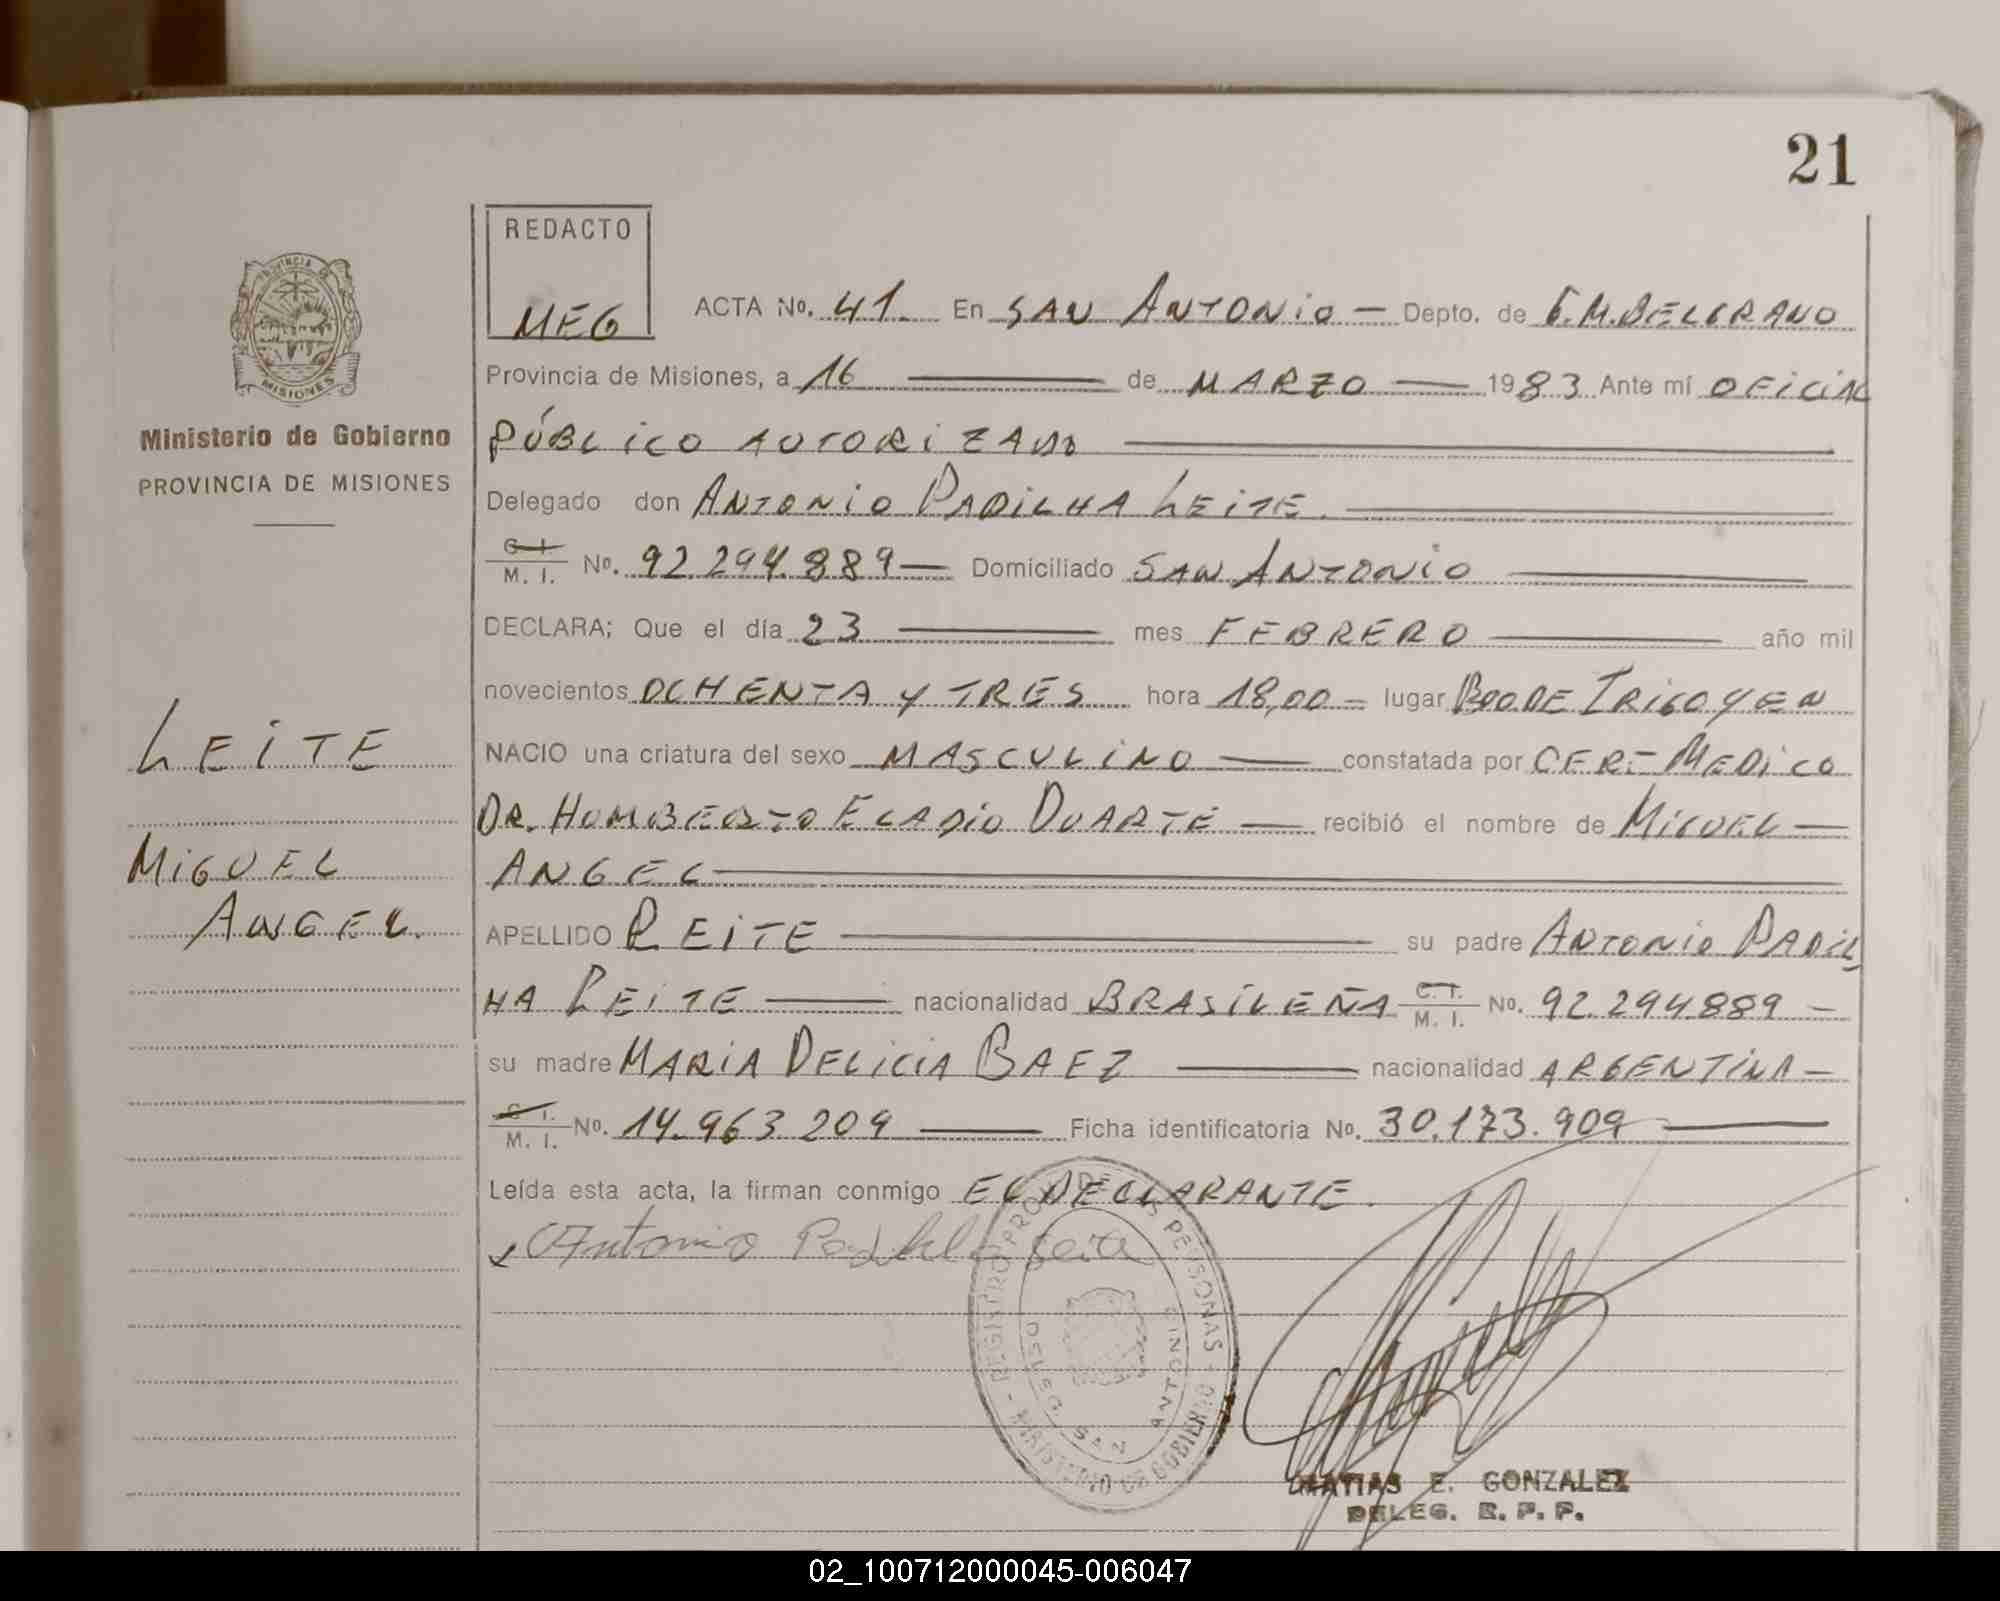 21
REDACTO
MEG
ACTA No. 41. En SAN ANTONIO — Depto. de G.M.BELGRANO
Provincia de Misiones, a 16 — de MARZO — 1983 Ante mí OFICIAL
PÚBLICO AUTORIZADO —
Delegado don ANTONIO PADILHA LEITE. —
C. I. / M. I. No. 92.294.889 — Domiciliado SAN ANTONIO —
DECLARA; Que el día 23 — mes FEBRERO — año mil
novecientos OCHENTA Y TRES hora 18,00 — lugar BDO DE IRIGOYEN
NACIO una criatura del sexo MASCULINO — constatada por CERT MEDICO
DR. HUMBERTO ELADIO DUARTE — recibió el nombre de MIGUEL —
ANGEL —
APELLIDO LEITE — su padre ANTONIO PADIL
HA LEITE — nacionalidad BRASILEÑA C. I. / M. I. No. 92.294.889 —
su madre MARIA DELICIA BAEZ — nacionalidad ARGENTINA —
C. I. / M. I. No. 14.963.209 — Ficha identificatoria No. 30.173.909 —
Leída esta acta, la firman conmigo EL DECLARANTE.
Antonio Padilha Leite
REGISTRO PROV. DE LAS PERSONAS - MINISTERIO DE GOBIERNO -
DELEG. SAN ANTONIO
MATIAS E. GONZALEZ
DELEG. R. P. P.
PROVINCIA DE
MISIONES
Ministerio de Gobierno
PROVINCIA DE MISIONES
LEITE
MIGUEL
ANGEL.
02_100712000045-006047